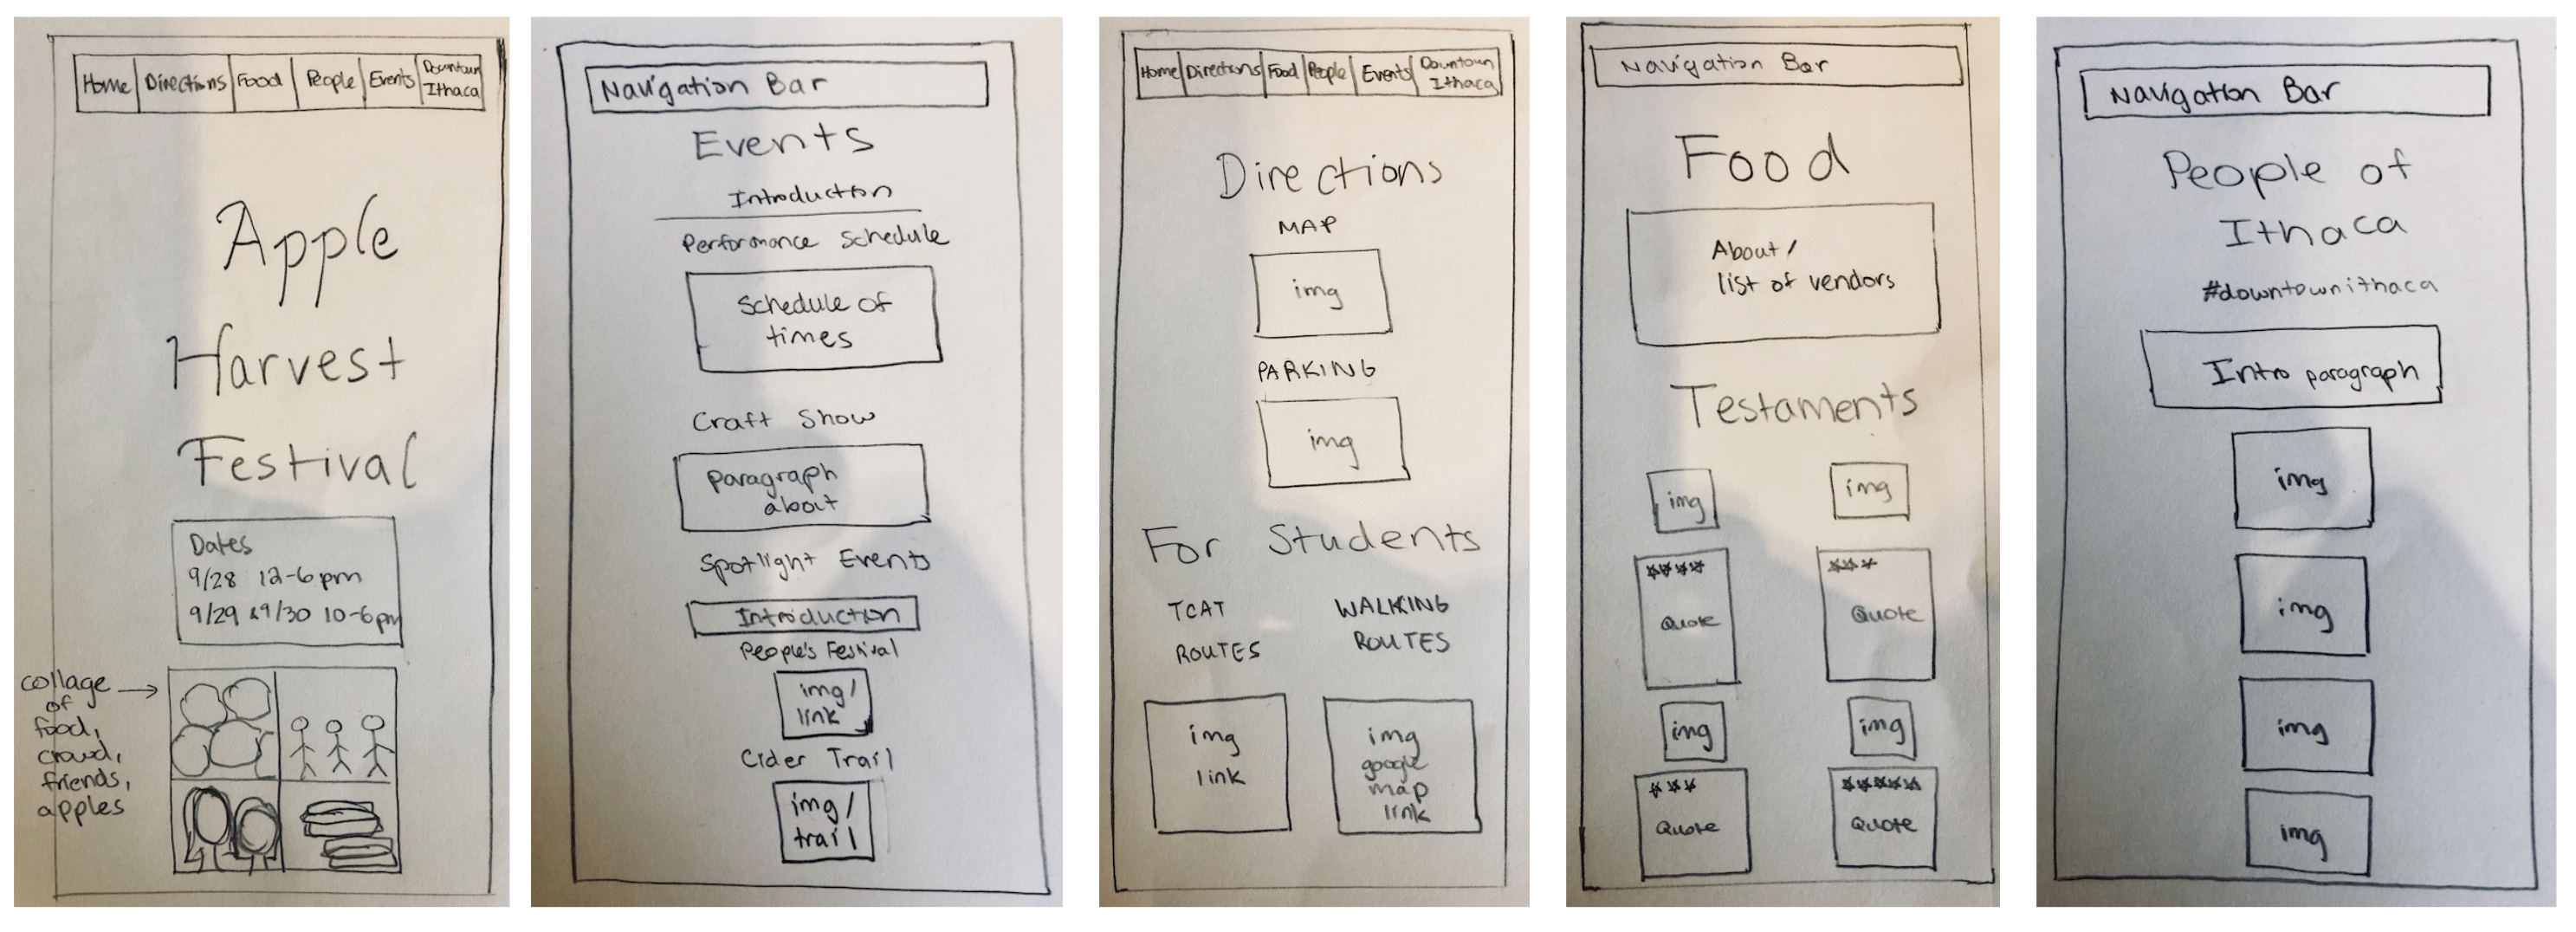 Home Directions Food People Events Downtown Ithaca
Apple
Harvest
Festival
Dates
9/28 12-6pm
9/29 & 9/30 10-6pm
collage
of
food,
crowd,
friends,
apples
Navigation Bar
Events
Introduction
Performance Schedule
Schedule of
times
Craft Show
paragraph
about
Spotlight Events
Introduction
People's Festival
img/
link
Cider Trail
img/
trail
Home Directions Food People Events Downtown Ithaca
Directions
MAP
img
PARKING
img
For Students
TCAT
ROUTES
WALKING
ROUTES
img
link
img
google
map
link
Navigation Bar
Food
About/
list of vendors
Testaments
img
img
Quote
Quote
img
img
Quote
Quote
Navigation Bar
People of
Ithaca
#downtownithaca
Intro paragraph
img
img
img
img